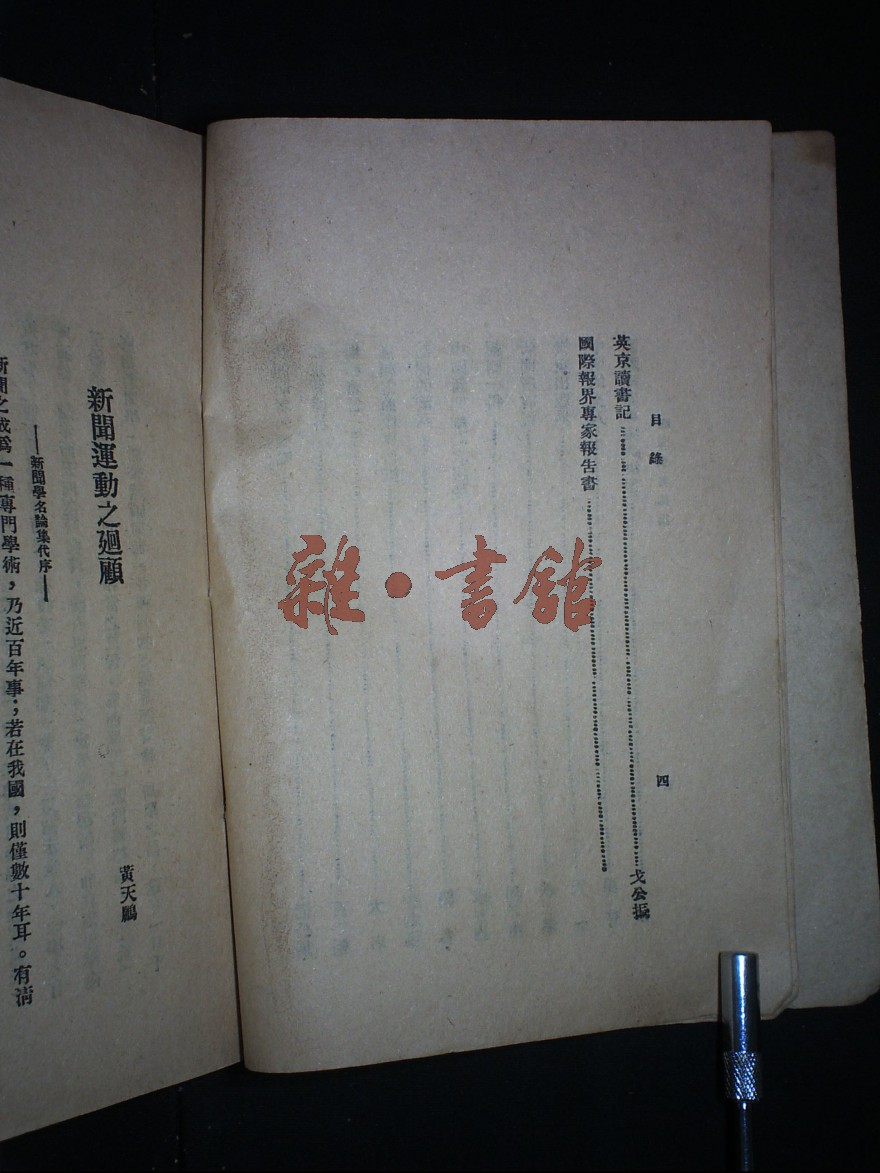 目錄
四
英京讀書記……戈公振
國際報界專家報告書……
新聞運動之廻顧
——新聞學名論集代序——
黃天鵬
新聞之成爲一種專門學術，乃近百年事；若在我國，則僅數十年耳。有清
雜·書館